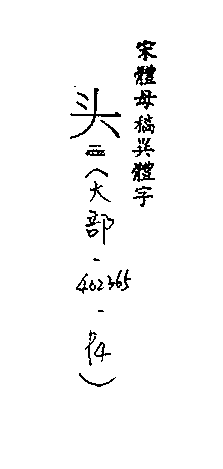 宋體母稿異體字
头二(大部-402365-P4)